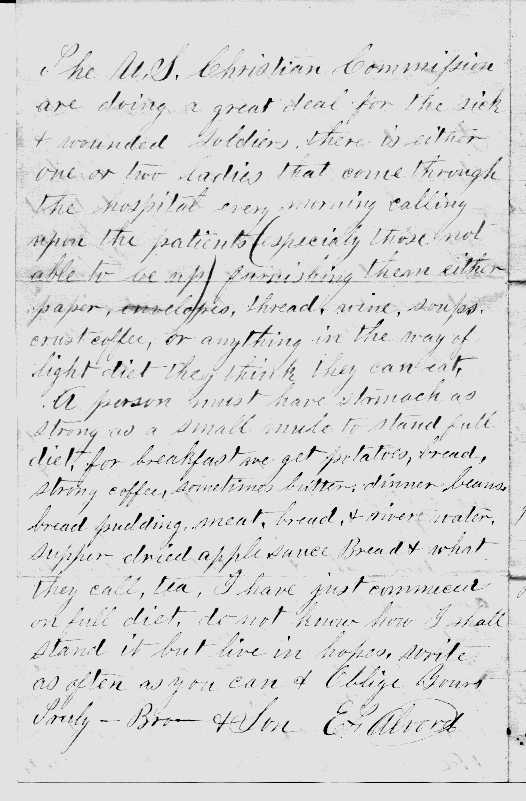 The U.S. Christian Commission
are doing a great deal for the sick
& wounded soldiers, there is either
one or two ladies that come through
the hospital every morning calling
upon the patients (especialy those not
able to be up) furnishing them either
paper, envelopes, thread, wine, soups.
crust coffee, or anything in the way of
light diet they think they can eat.
A person must have stomach as
strong as a small mule to stand full
diet, for breakfast we get potatoes, bread,
strong coffee, sometimes butter, dinner beans
bread pudding, meat, bread, & rivere water,
supper dried apple sauce Bread & what
they call, tea, I have just commced
on full diet, do not know how I shall
stand it but live in hopes, write
as often as you can & Oblige Yours
Truly — Bro — & Son E. Alvord